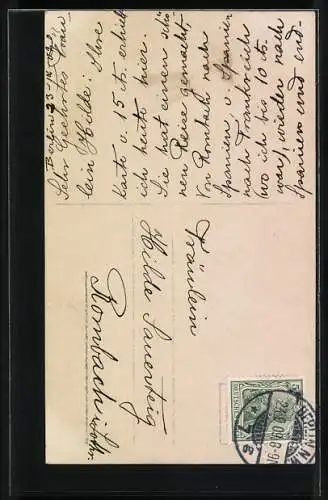 Berlin 23-12 09.
Sehr Geehrtes Fräu-
lein Hilde: Ihre
Karte v. 15 ds. erhielt
ich heute hier.
Sie hat einen schö-
nen Reise gemacht
Von Rombach nach
Spanien, v. Spanien
nach Frankreich
(wo ich bis 10 ds.
war), wieder nach
Spanien und end-
Fräulein
Hilde Sauerteig
Rombach i. Lothr.
5
BERLIN
8-9N